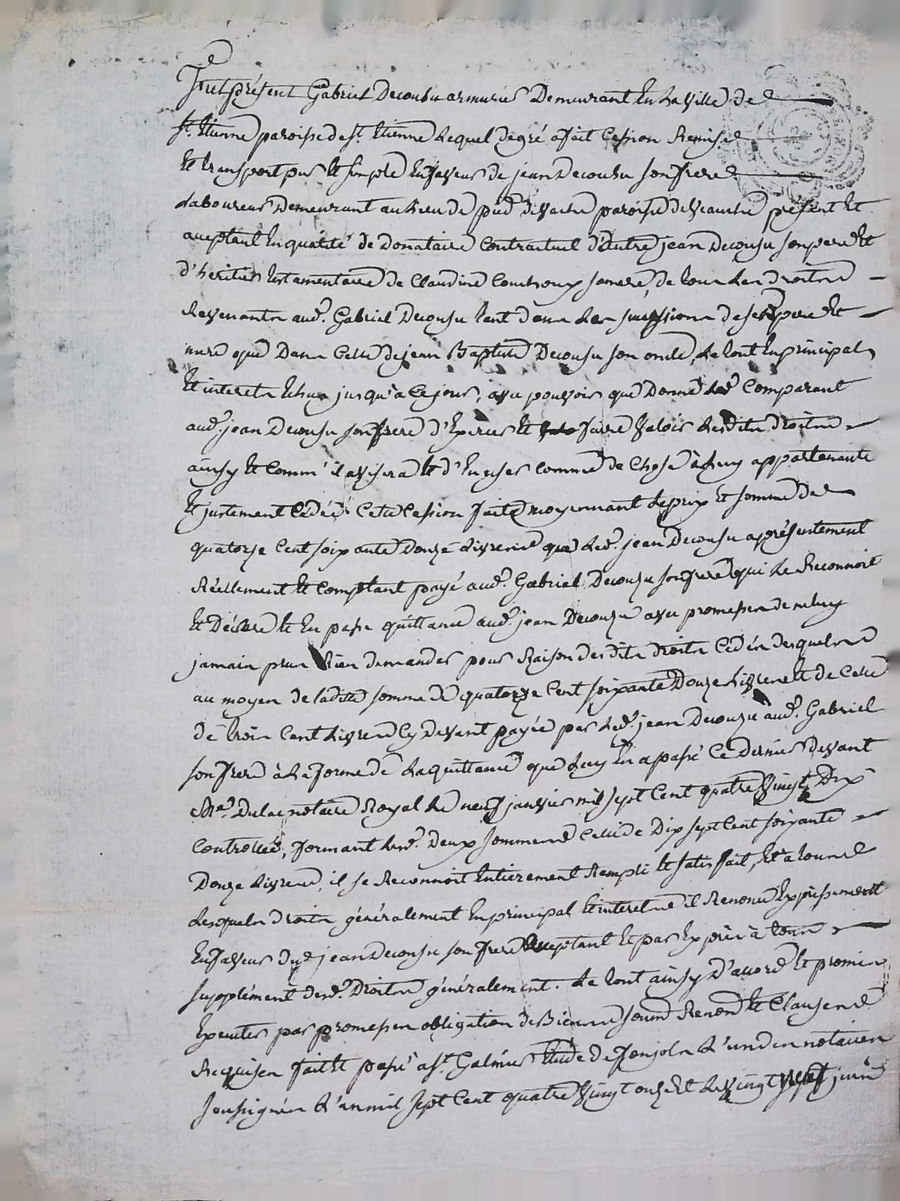 Fut présent Gabriel Decousu armurier Demeurant En la ville de
st. Etienne paroisse de st. Etienne Lequel dagré a fait Cession Remise
Et transport pur Et simple En faveur de jean Decousu son frere
Laboureur Demeurant au Lieu de paroisse de veauche présent Et
aceptant En qualité de Donataire Contractuel d'autre jean Decousu son pere Et
d'heritier testamentaire de Claudine sa mere, de tous Les droits
Revenants aud. Gabriel Decousu tant dans Les successions de ses pere Et
mere que Dans Celle de jean Baptiste Decousu son oncle, Le tout En principal
Et interets Echus jusqu'a Ce jour, avec pouvoir que Donne Led. Comparant
aud. jean Decousu son frere d'Exercer Et faire valoir Lesdits droits
ainsy Et Comm' il avisera Et d'En user Comme de Chose à Luy appartenante
Et justement Cédée. Cette Cession faite moyennant Le prix Et somme de
quatorze Cent soixante Douze Livres que Led. jean Decousu a présentement
Réellement Et Comptant payé aud. Gabriel Decousu son frere qui Le Reconnoit
Et Déclare Et En passe quittance aud. jean Decousu avec promesse de ne luy
jamais plus Rien demander pour Raison desdits droits Cédés desquels
au moyen de ladite somme de quatorze Cent soixante Douze Livres Et de Celle
de trois Cent Livres Cy devant payée par Led. jean Decousu aud. Gabriel
son frere à La forme de La quittance que Luy En a passé Ce dernier devant
Me. notaire Royal Le neuf janvier mil sept Cent quatre vingt Dix
Controllée, formant Lesd. Deux sommes Celle de Dix sept Cent soixante
Douze Livres, il se Reconnoit Entièrement Rempli Et satisfait, Et a tous
Lesquels droits généralement En principal Et interets il Renonce Expressement
En faveur dud. jean Decousu son frere aceptant Et par Exprès à tous
supplément desd. Droits généralement. Le tout ainsy D'accord Et promis
Executer par promesses obligation de Biens soum. Renon. Et Clauses
Requises fait Et passé a st. Galmier Etude de L'un des notaires
soussignés L'an mil sept Cent quatre vingt onze Et Le vingt sept juin